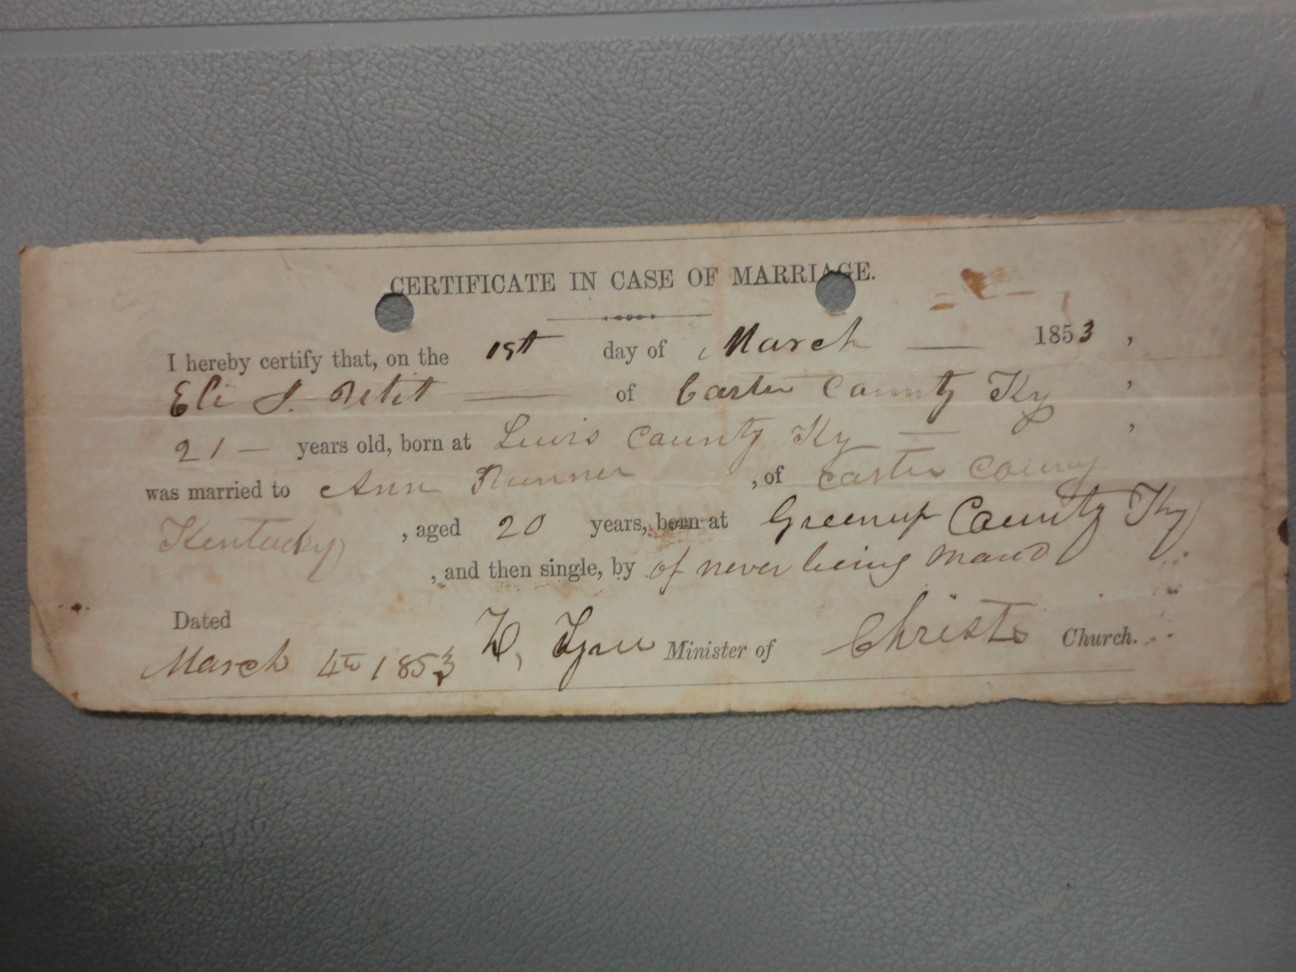 CERTIFICATE IN CASE OF MARRIAGE.
I hereby certify that, on the 1st day of March 1853,
Eli J. Petit of Carter County Ky,
21 years old, born at Lewis County Ky,
was married to Ann Runner, of Carter County
Kentucky, aged 20 years, born at Greenup County Ky
, and then single, by of never being
Dated
March 4th 1853 Minister of Christs Church.